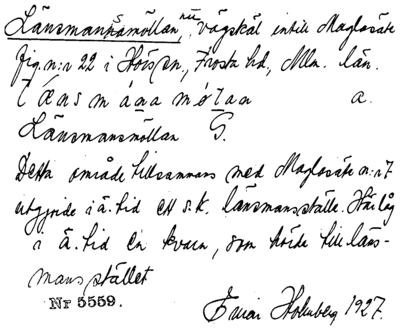 Länsmansmöllan, nu vägskäl intill Maglasäte
fig. n:r 22 i Hörs sn, Frosta hd, Mlm. län.
länsmána møl̄an a.
Länsmansmöllan G.
Detta område tillsammans med Maglasäte n:r 7
utgjorde i ä. tid ett s.k. länsmansställe. Här låg
i ä. tid en kvarn, som hörde till läns-
mansstället
Nr 5559.
Einar Holmberg 1927.